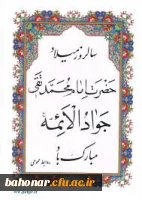 سالروز میلاد
حضرت امام محمد تقی
جواد الائمه
مبارک باد
روابط عمومی
bahonar.areeo.ac.ir